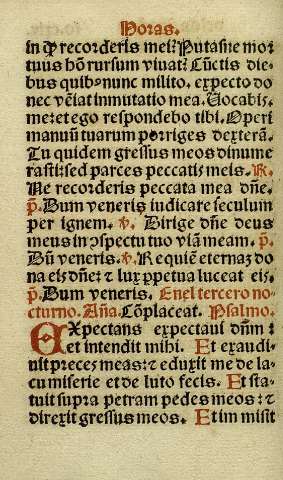 Horas.
in q̄ recorderis mei? Putasne mor
tuus hõ rursum viuat? Cũctis die-
bus quibꝰ nunc milito. expecto do
nec veniat inmutatio mea. Vocabis
me: et ego respondebo tibi. Operi
manuũ tuarum porriges dexterã.
Tu quidem gressus meos dinume
rasti: sed parces peccatis meis. R.
Ne recorderis peccata mea dñe.
p̄. Dum veneris iudicare seculum
per ignem. v. Dirige dñe deus
meus in ꝯspectu tuo viã meam. p̄.
Dũ veneris. v. Requiē eternaz do
na eis dñe: ⁊ lux ꝑpetua luceat eis.
p̄. Dum veneris. Enel tercero no-
cturno. Añа. Cõplaceat. Psalmo.
EXpectans expectaui dñm:
et intendit mihi. Et exaudi-
uit preces meas: ⁊ eduxit me de la-
cu miserie et de luto fecis. Et sta-
tuit supra petram pedes meos: ⁊
direxit gressus meos. Et im misit